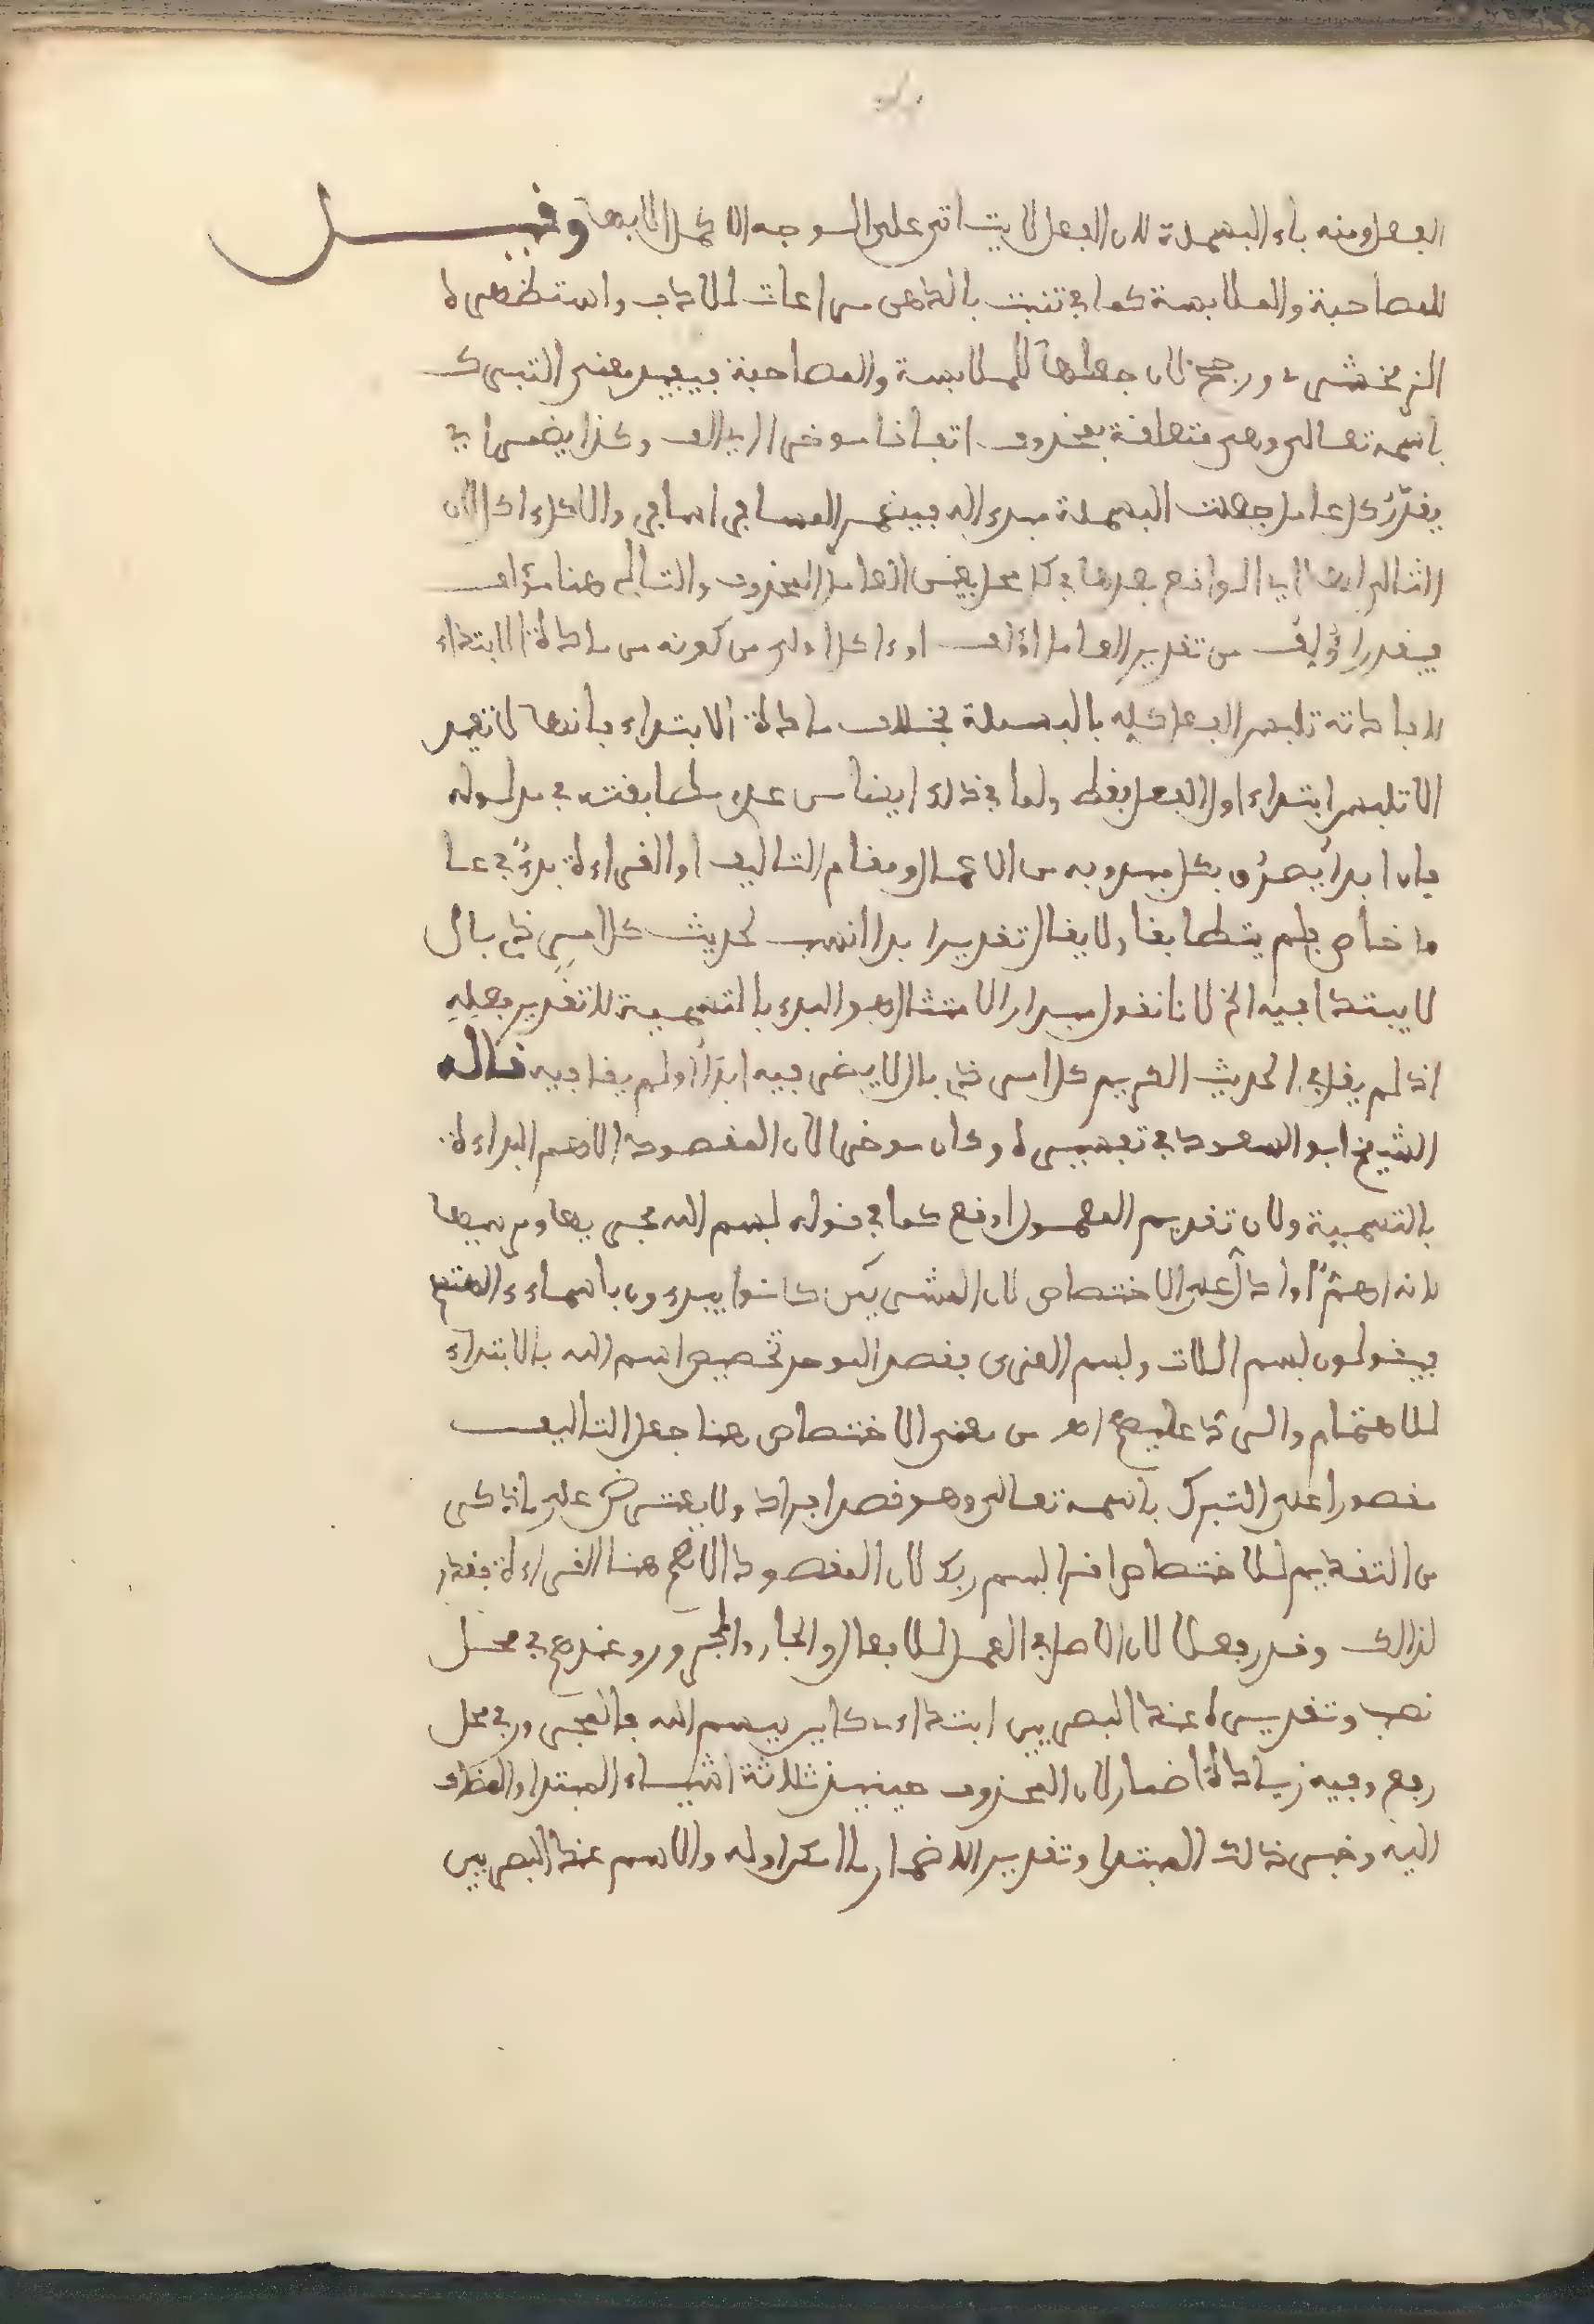 الفعل ومنه باء البسملة لان الفعل لا يتاتى على الوجه الاكمل الا بها وقيل
للمصاحبة والملابسة كما في تنبت بالدهن مراعات للادب واستظهره
الزمخشري ورجح لان جعلها للملابسة والمصاحبة يفيد معنى التبرك
باسمه تعالى وهي متعلقة بمحذوف اتفاقا موخر الى ذالك وكذا يضمر اي
يقدر كل عامل جعلت البسملة مبدءا له فيضمر المسافر اسافر والاكل ءاكل لان
التالي لها اي الواقع بعدها في كل محل يعين العامل المحذوف والتالي هنا مؤلف
فيقدر اؤلف من تقدير العامل اؤلف او ءاكل اولى من كونه من مادة الابتداء
لافادته تلبس الفعل كله بالبسملة بخلاف مادة الابتداء فانها لا تفيد
الا تلبس ابتداء اول الفعل فقط ولما في ذلك ايضا من عدم مطابقته في مدلوله
فان ابدأ يصدق بكل مبدو به من الاعمال ومقام التاليف او القراءة بدؤ في عا
ما خاص فلم يتطابقا ولا يقال تقدير ابدا انسب لحديث كل امر ذي بال
لا يبتدا فيه الخ لانا نقول مدار الامتثال هو البدء بالتسمية لا تقدير فعله
اذ لم يقل في الحديث الكريم كل امر ذي بال لا يقل فيه ابدأ او لم يقل فيه قاله
الشيخ ابو السعود في تفسيره وكان موخرا لان المقصود الاهم البداءة
بالتسمية ولان تقديم المعمول اوقع كما في قوله بسم الله مجريها ومرسيها
لانه اهم وادل على الاختصاص لان المشركين كانوا يبدءون باسماء ءالهتهم
فيقولون بسم اللات وبسم العزى فقصد الموحد تخصيص اسم الله بالابتداء
للاهتمام والرد عليهم اهـ من معنى الاختصاص هنا جعل التاليف
مقصورا على التبرك باسمه تعالى وهو قصر افراد ولا يعترض على ما ذكر
من التقديم للاختصاص اقرا باسم ربك لان المقصود الاهم هنا القراءة فقدم
لذالك وقدر فعلا لان الاصل في العمل للافعال والجار والمجرور عندهم في محل
نصب وتقديره عند البصريين ابتداءي كاين بسم الله فالمجرور في محل
رفع وفيه زيادة اضمار لان المحذوف حينيذ ثلاثة اشياء المبتدا والمضاف
اليه وخبر ذالك المبتدا وتقدير الاضمار ما امكن اوله والاسم عند البصريين